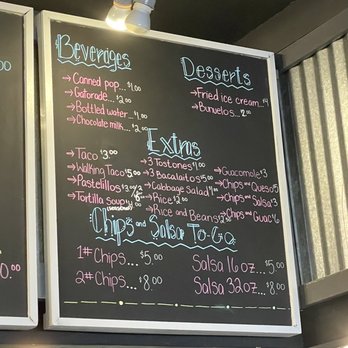 Beverages
→Canned pop... $1.00
→Gatorade... $2.00
→Bottled water... $1.00
→Chocolate milk... $2.00
Desserts
→Fried ice cream..
→Bunuelos... 
Extras
→Taco $3.00
→Walking Taco $5.00
→Pastelillos
→Tortilla soup
→3 Tostones $4.00
→3 Bacalaitos $5.00
→Cabbage Salad
→Rice $2.00
→Rice and Beans
→Guacomole $3
→Chips and Queso $5
→Chips and Salsa $3
→Chips and Guac $6
Chips and Salsa To-Go
1# Chips... $5.00
2# Chips... $8.00
Salsa 16 oz... $5.00
Salsa 32 oz... $8.00